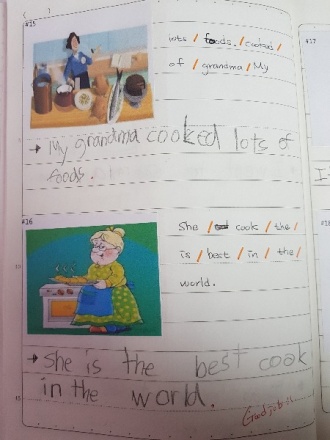 #15
lots / foods. / cooked /
of / grandma / My
→ My grandma cooked lots of
foods.
#16
She / cook / the /
is / best / in / the /
world.
→ she is the best cook
in the world.
Good job